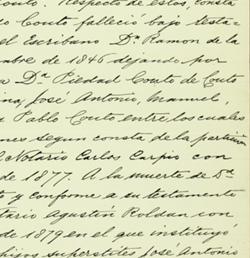 Couto. Respecto de estos, consta
Couto falleció bajo testa-
el Escribano Dn. Ramon de la
mbre de 1846 dejando por
a Da. Piedad Couto de Couto
ina, José Antonio, Manuel,
Pablo Couto entre los cuales
nes segun consta de la particion
Notario Carlos Carpio con
de 1877. A la muerte de Da.
y conforme a su testamento
tario Agustin Roldan con
de 1879 en el que instituyó
hijos superstites José Antonio